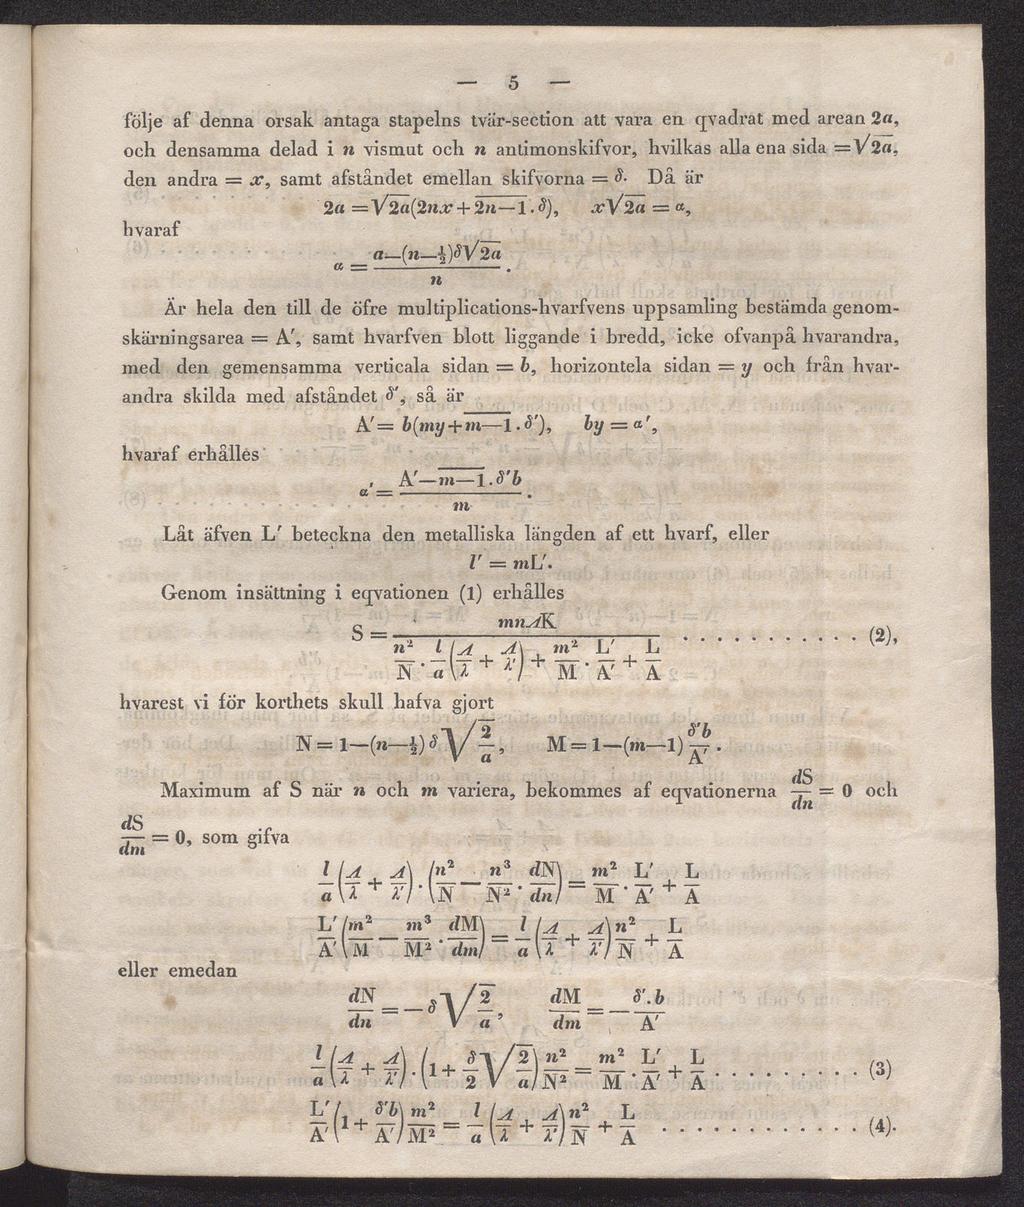 — 5 —
följe af denna orsak antaga stapelns tvär-section att vara en qvadrat med arean 2a,
och densamma delad i n vismut och n antimonskifvor, hvilkas alla ena sida = √2a,
den andra = x, samt afståndet emellan skifvorna = δ. Då är
2a = √2a(2nx + 2n—1 . δ), x√2a = α,
hvaraf
α = (a—(n—½)δ√2a) / n .
Är hela den till de öfre multiplications-hvarfvens uppsamling bestämda genom-
skärningsarea = A′, samt hvarfven blott liggande i bredd, icke ofvanpå hvarandra,
med den gemensamma verticala sidan = b, horizontela sidan = y och från hvar-
andra skilda med afståndet δ′, så är
A′ = b(my + m—1 . δ′), by = α′,
hvaraf erhålles
α′ = (A′—m—1 . δ′b) / m .
Låt äfven L′ beteckna den metalliska längden af ett hvarf, eller
l′ = mL′.
Genom insättning i eqvationen (1) erhålles
S = mnΛK / (n²/N . l/a (Λ/λ + Λ/λ′) + m²/M . L′/A′ + L/A) . . . . . . . . . . . . (2),
hvarest vi för korthets skull hafva gjort
N = 1—(n—½) δ √(2/a), M = 1—(m—1) δ′b/A′ .
Maximum af S när n och m variera, bekommes af eqvationerna dS/dn = 0 och
dS/dm = 0, som gifva
l/a (Λ/λ + Λ/λ′) . (n²/N — n³/N² . dN/dn) = m²/M . L′/A′ + L/A
L′/A′ (m²/M — m³/M² . dM/dm) = l/a (Λ/λ + Λ/λ′) n²/N + L/A
eller emedan
dN/dn = — δ √(2/a), dM/dm = — δ′.b/A′
l/a (Λ/λ + Λ/λ′) . (1 + δ/2 √(2/a)) n²/N² = m²/M . L′/A′ + L/A . . . . . . . . . . (3)
L′/A′ (1 + δ′b/A′) m²/M² = l/a (Λ/λ + Λ/λ′) n²/N + L/A . . . . . . . . . . . . . (4).